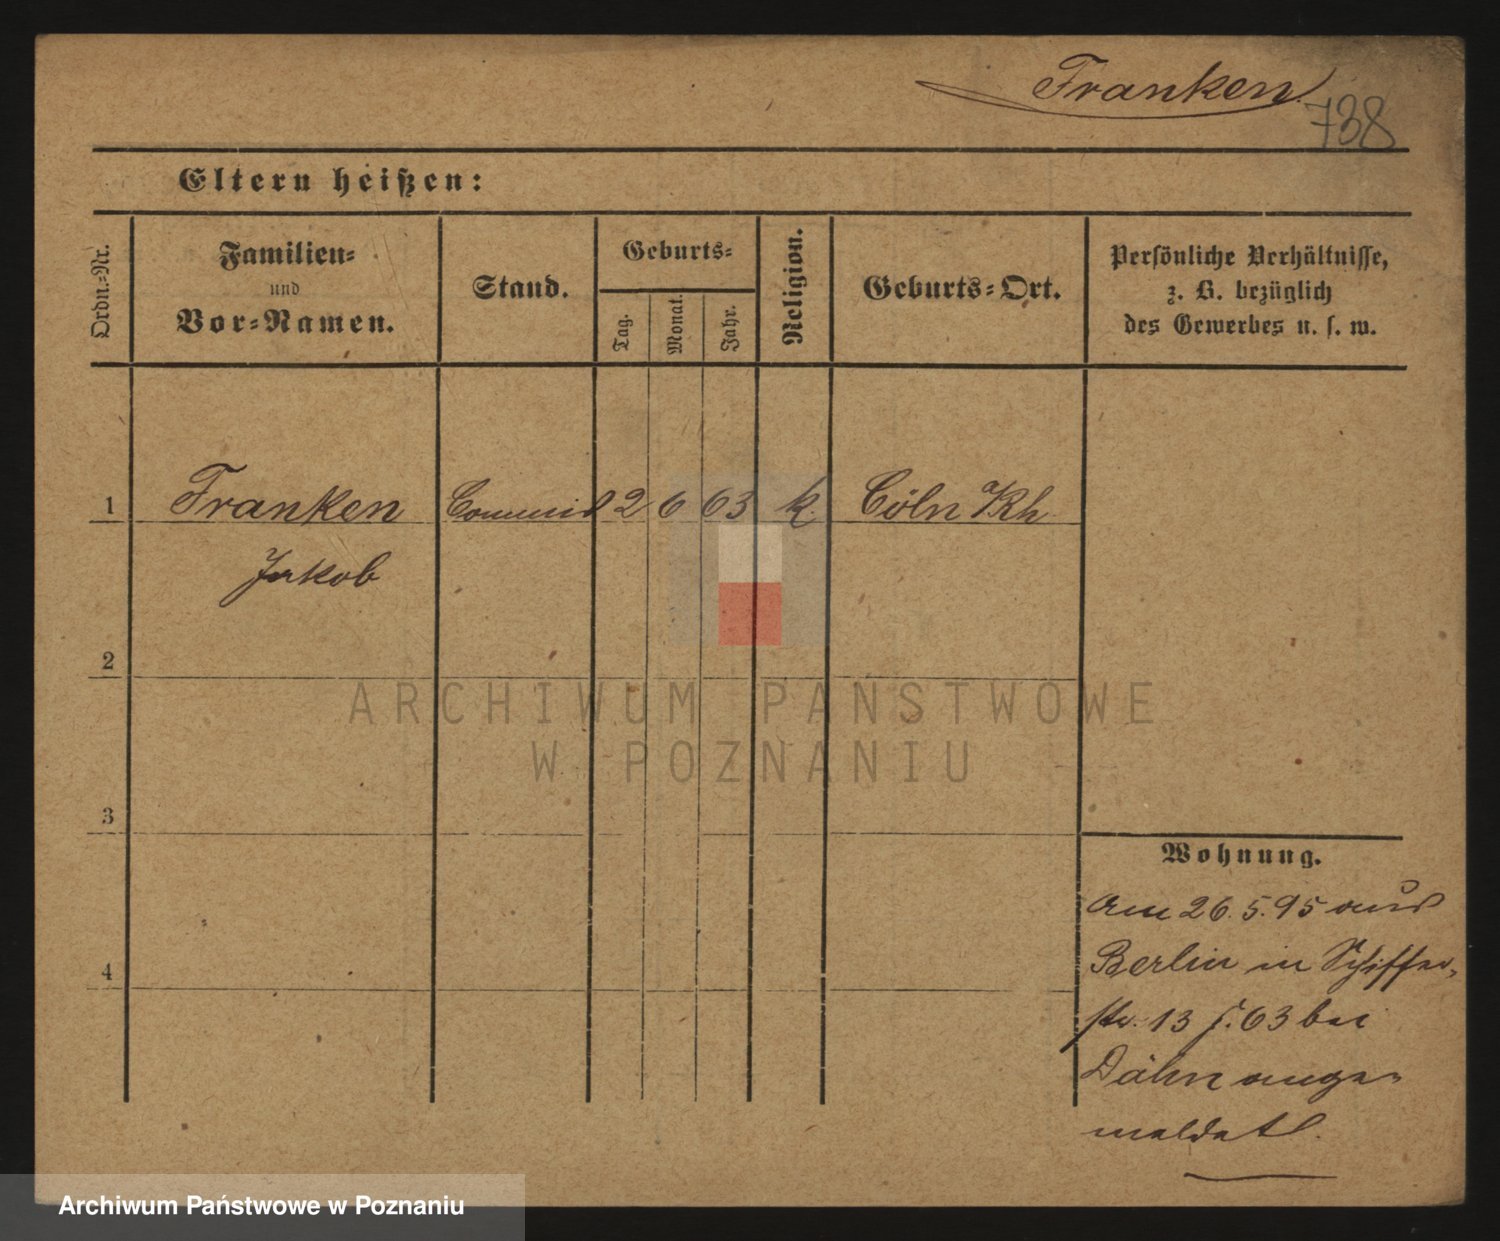 Franken
738
Eltern heißen:
Ordn.=Nr.
Familien=
und
Vor=Namen.
Stand.
Geburts=
Tag.
Monat.
Jahr.
Religion.
Geburts=Ort.
Persönliche Verhältnisse,
z. B. bezüglich
des Gewerbes u. s. w.
1 Franken Commis 2 6 63 k. Cöln a/Rh
Jakob
2
ARCHIWUM PAŃSTWOWE
W POZNANIU
3
Wohnung.
am 26.5.95 aus
Berlin in Schiffer=
4
str. 13 f. 63 bei
Dähn ange=
meldet.
Archiwum Państwowe w Poznaniu